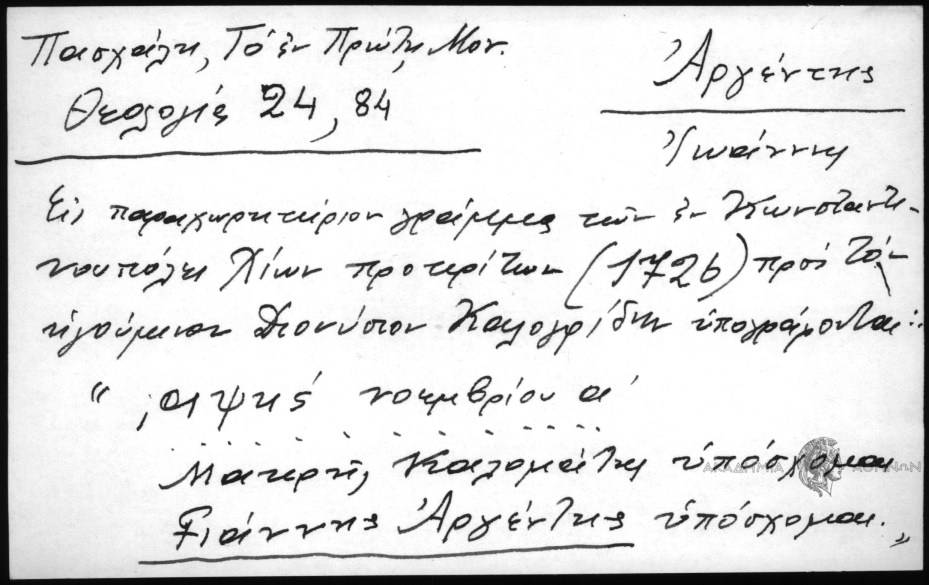 Πασχάλη, Τό ἐν Πρώτῃ Μον.
Θεολογία 24, 84
Ἀργέντης
Ἰωάννης
Εἰς παραχωρητήριον γράμμα τῶν ἐν Κωνσταντι-
νουπόλει Χίων προκρίτων (1726) πρός τόν
ἡγούμενον Διονύσιον Καλογρίδην ὑπογράφονται:
“ ͵αψκς΄ νοεμβρίου α΄
. . . . . . . . . . . . .
Μακρῆς ὑπόσχομαι
Γιάννης Ἀργέντης ὑπόσχομαι.”
ΑΚΑΔΗΜΙΑ ΑΘΗΝΩΝ